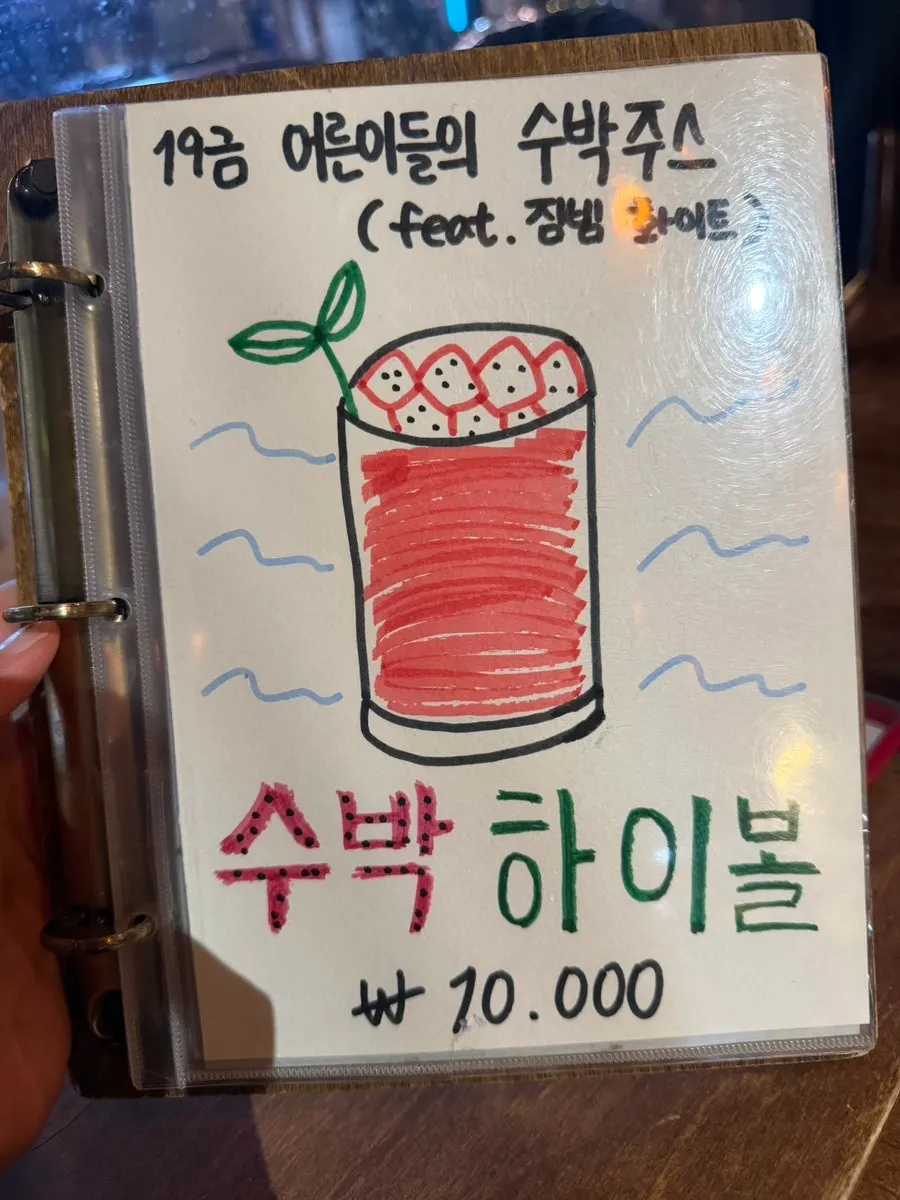 19금 어른이들의 수박주스
(feat. 짐빔 화이트)
수박 하이볼
₩ 10.000